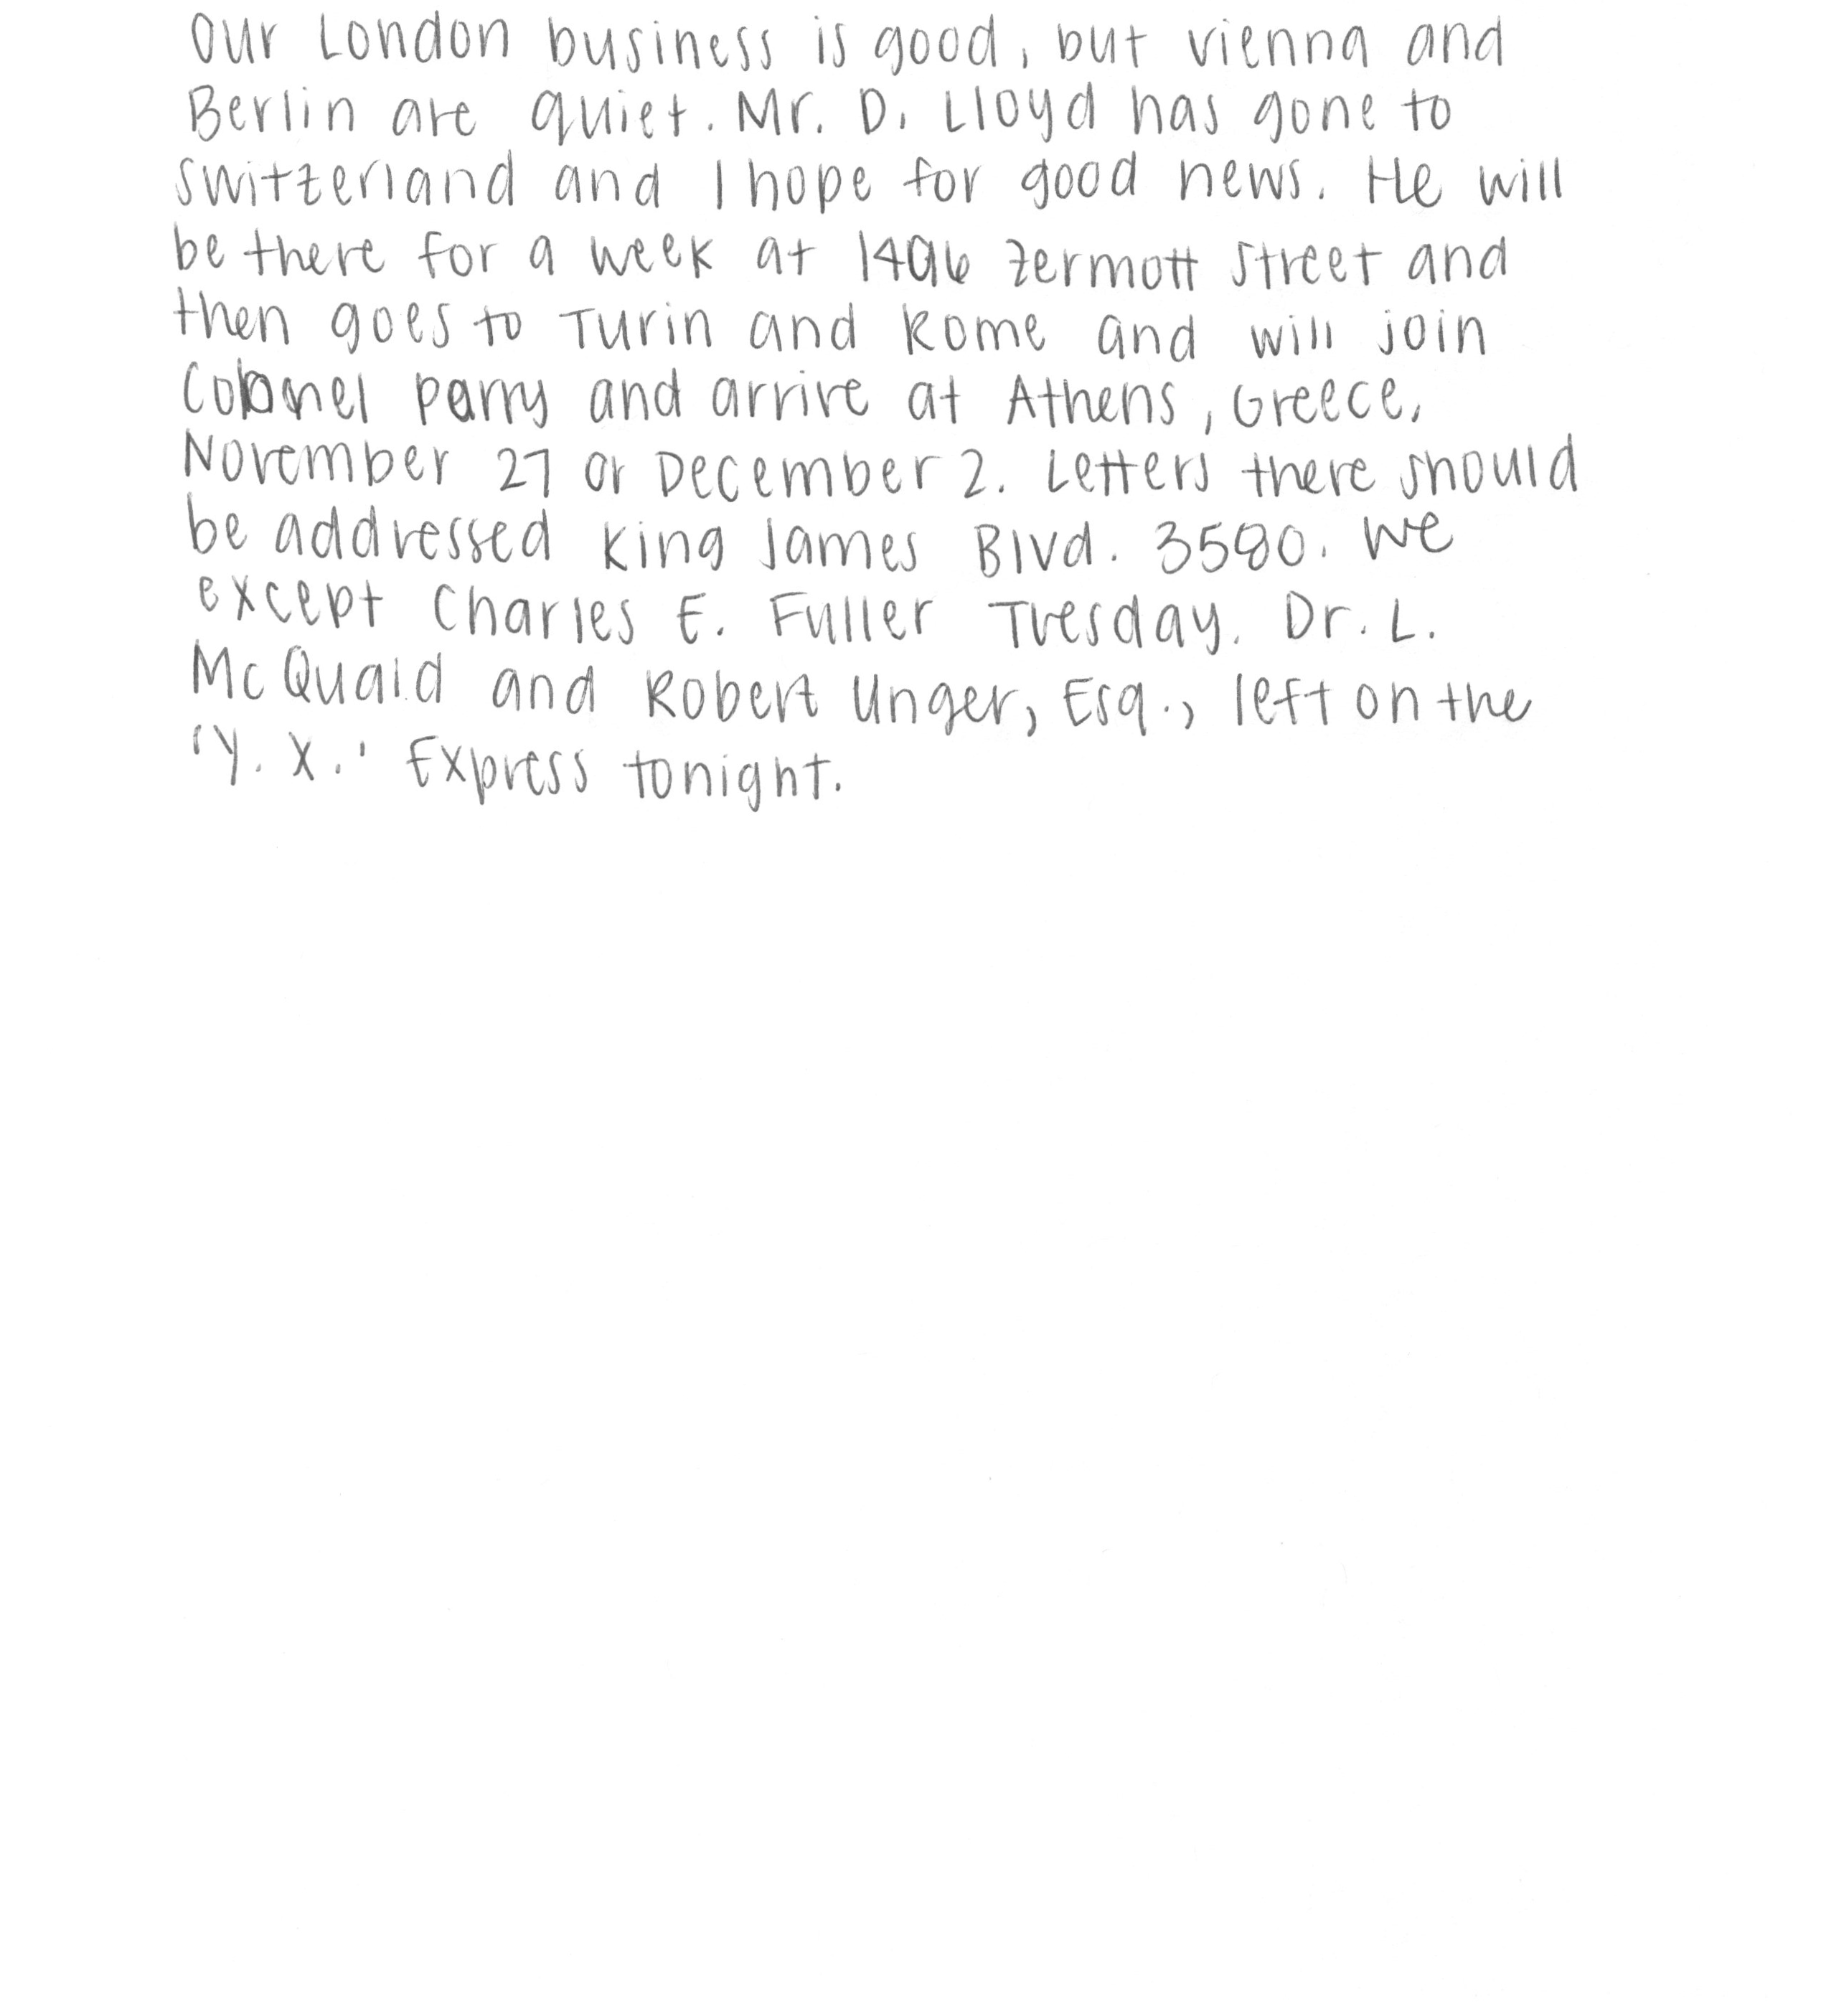 Our London business is good, but Vienna and
Berlin are quiet. Mr. D. Lloyd has gone to
Switzerland and I hope for good news. He will
be there for a week at 1496 Zermott Street and
then goes to Turin and Rome and will join
Colonel Parry and arrive at Athens, Greece,
November 27 or December 2. Letters there should
be addressed King James Blvd. 3580. We
except Charles E. Fuller Tuesday. Dr. L.
McQuaid and Robert Unger, Esq., left on the
'Y. X.' Express tonight.